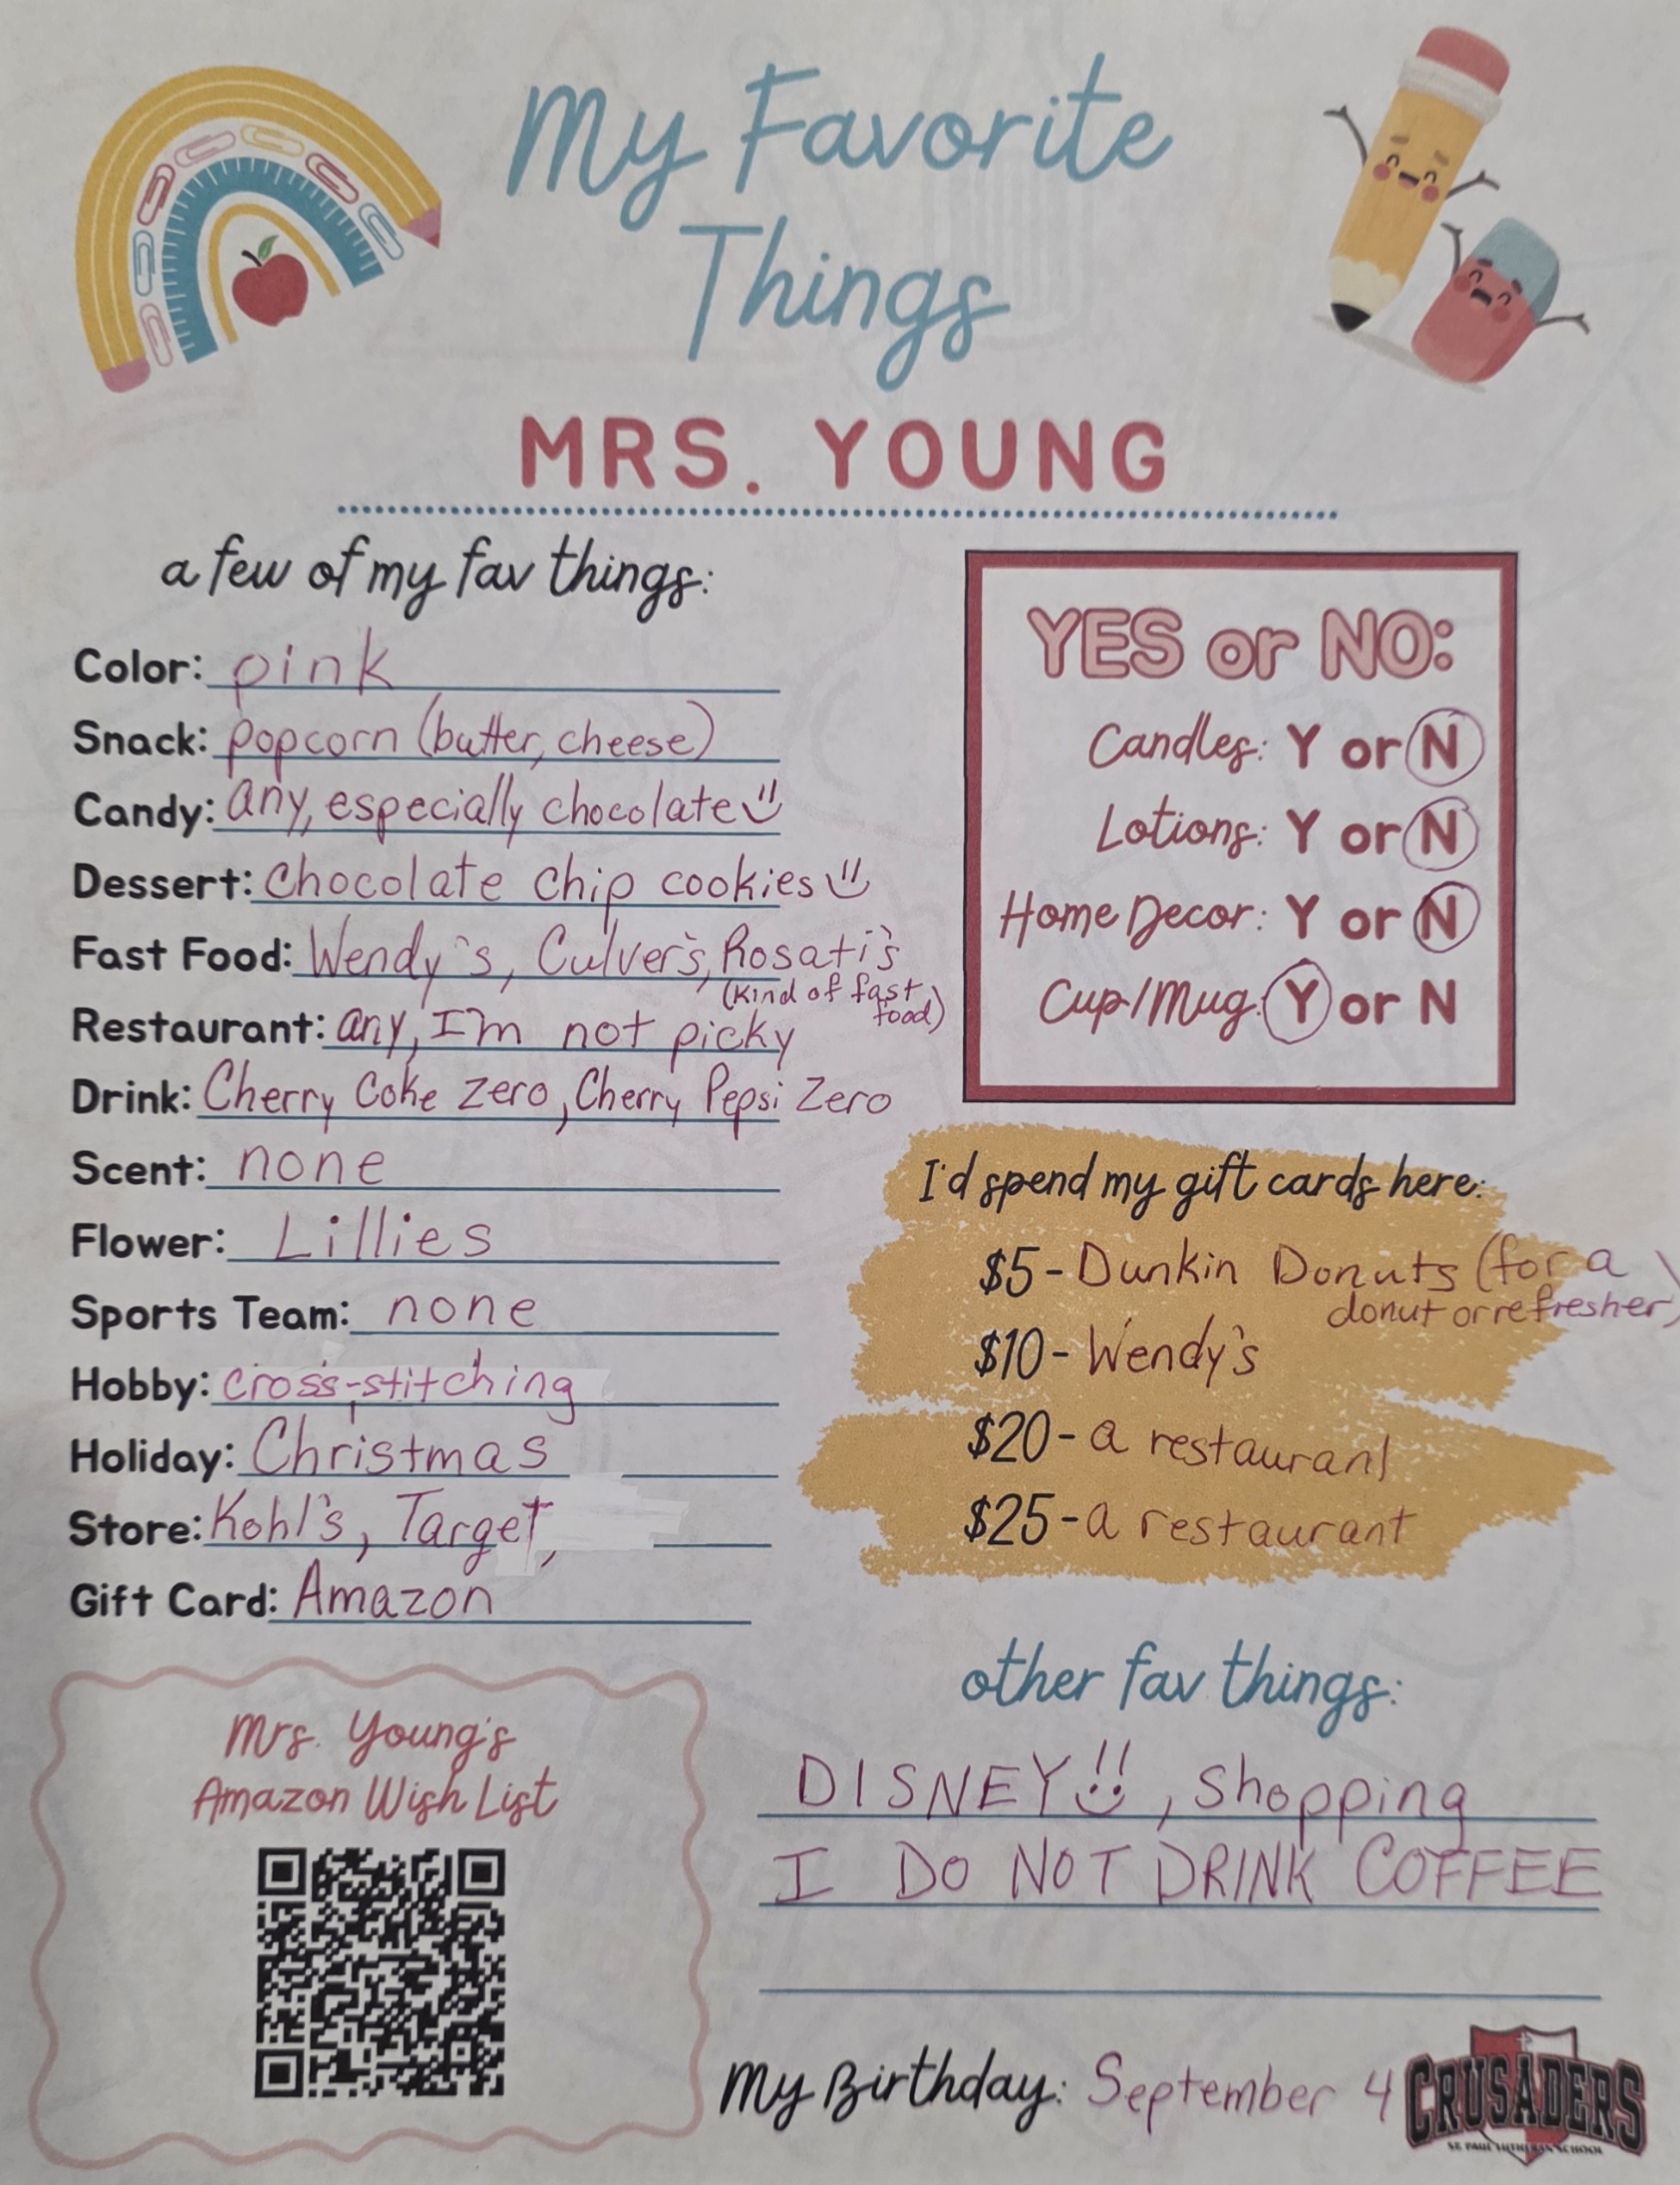 My Favorite
Things
MRS. YOUNG
a few of my fav things:
Color: pink
Snack: popcorn (butter, cheese)
Candy: any, especially chocolate
Dessert: Chocolate chip cookies
Fast Food: Wendy's, Culver's, Rosati's
(kind of fast
food)
Restaurant: any, I'm not picky
Drink: Cherry Coke Zero, Cherry Pepsi Zero
Scent: none
Flower: Lillies
Sports Team: none
Hobby: cross-stitching
Holiday: Christmas
Store: Kohl's, Target,
Gift Card: Amazon
YES or NO:
Candles: Y or N
Lotions: Y or N
Home Decor: Y or N
Cup/Mug: Y or N
I'd spend my gift cards here:
$5 - Dunkin Donuts (for a
donut or refresher)
$10 - Wendy's
$20 - a restaurant
$25 - a restaurant
Mrs. Young's
Amazon Wish List
other fav things:
DISNEY!!, Shopping
I DO NOT DRINK COFFEE
My Birthday: September 4
CRUSADERS
ST. PAUL LUTHERAN SCHOOL